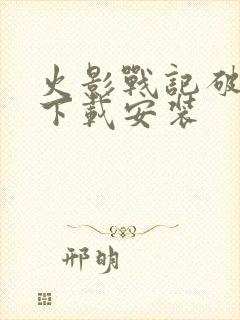 火影戰記破
下載安裝
邢明